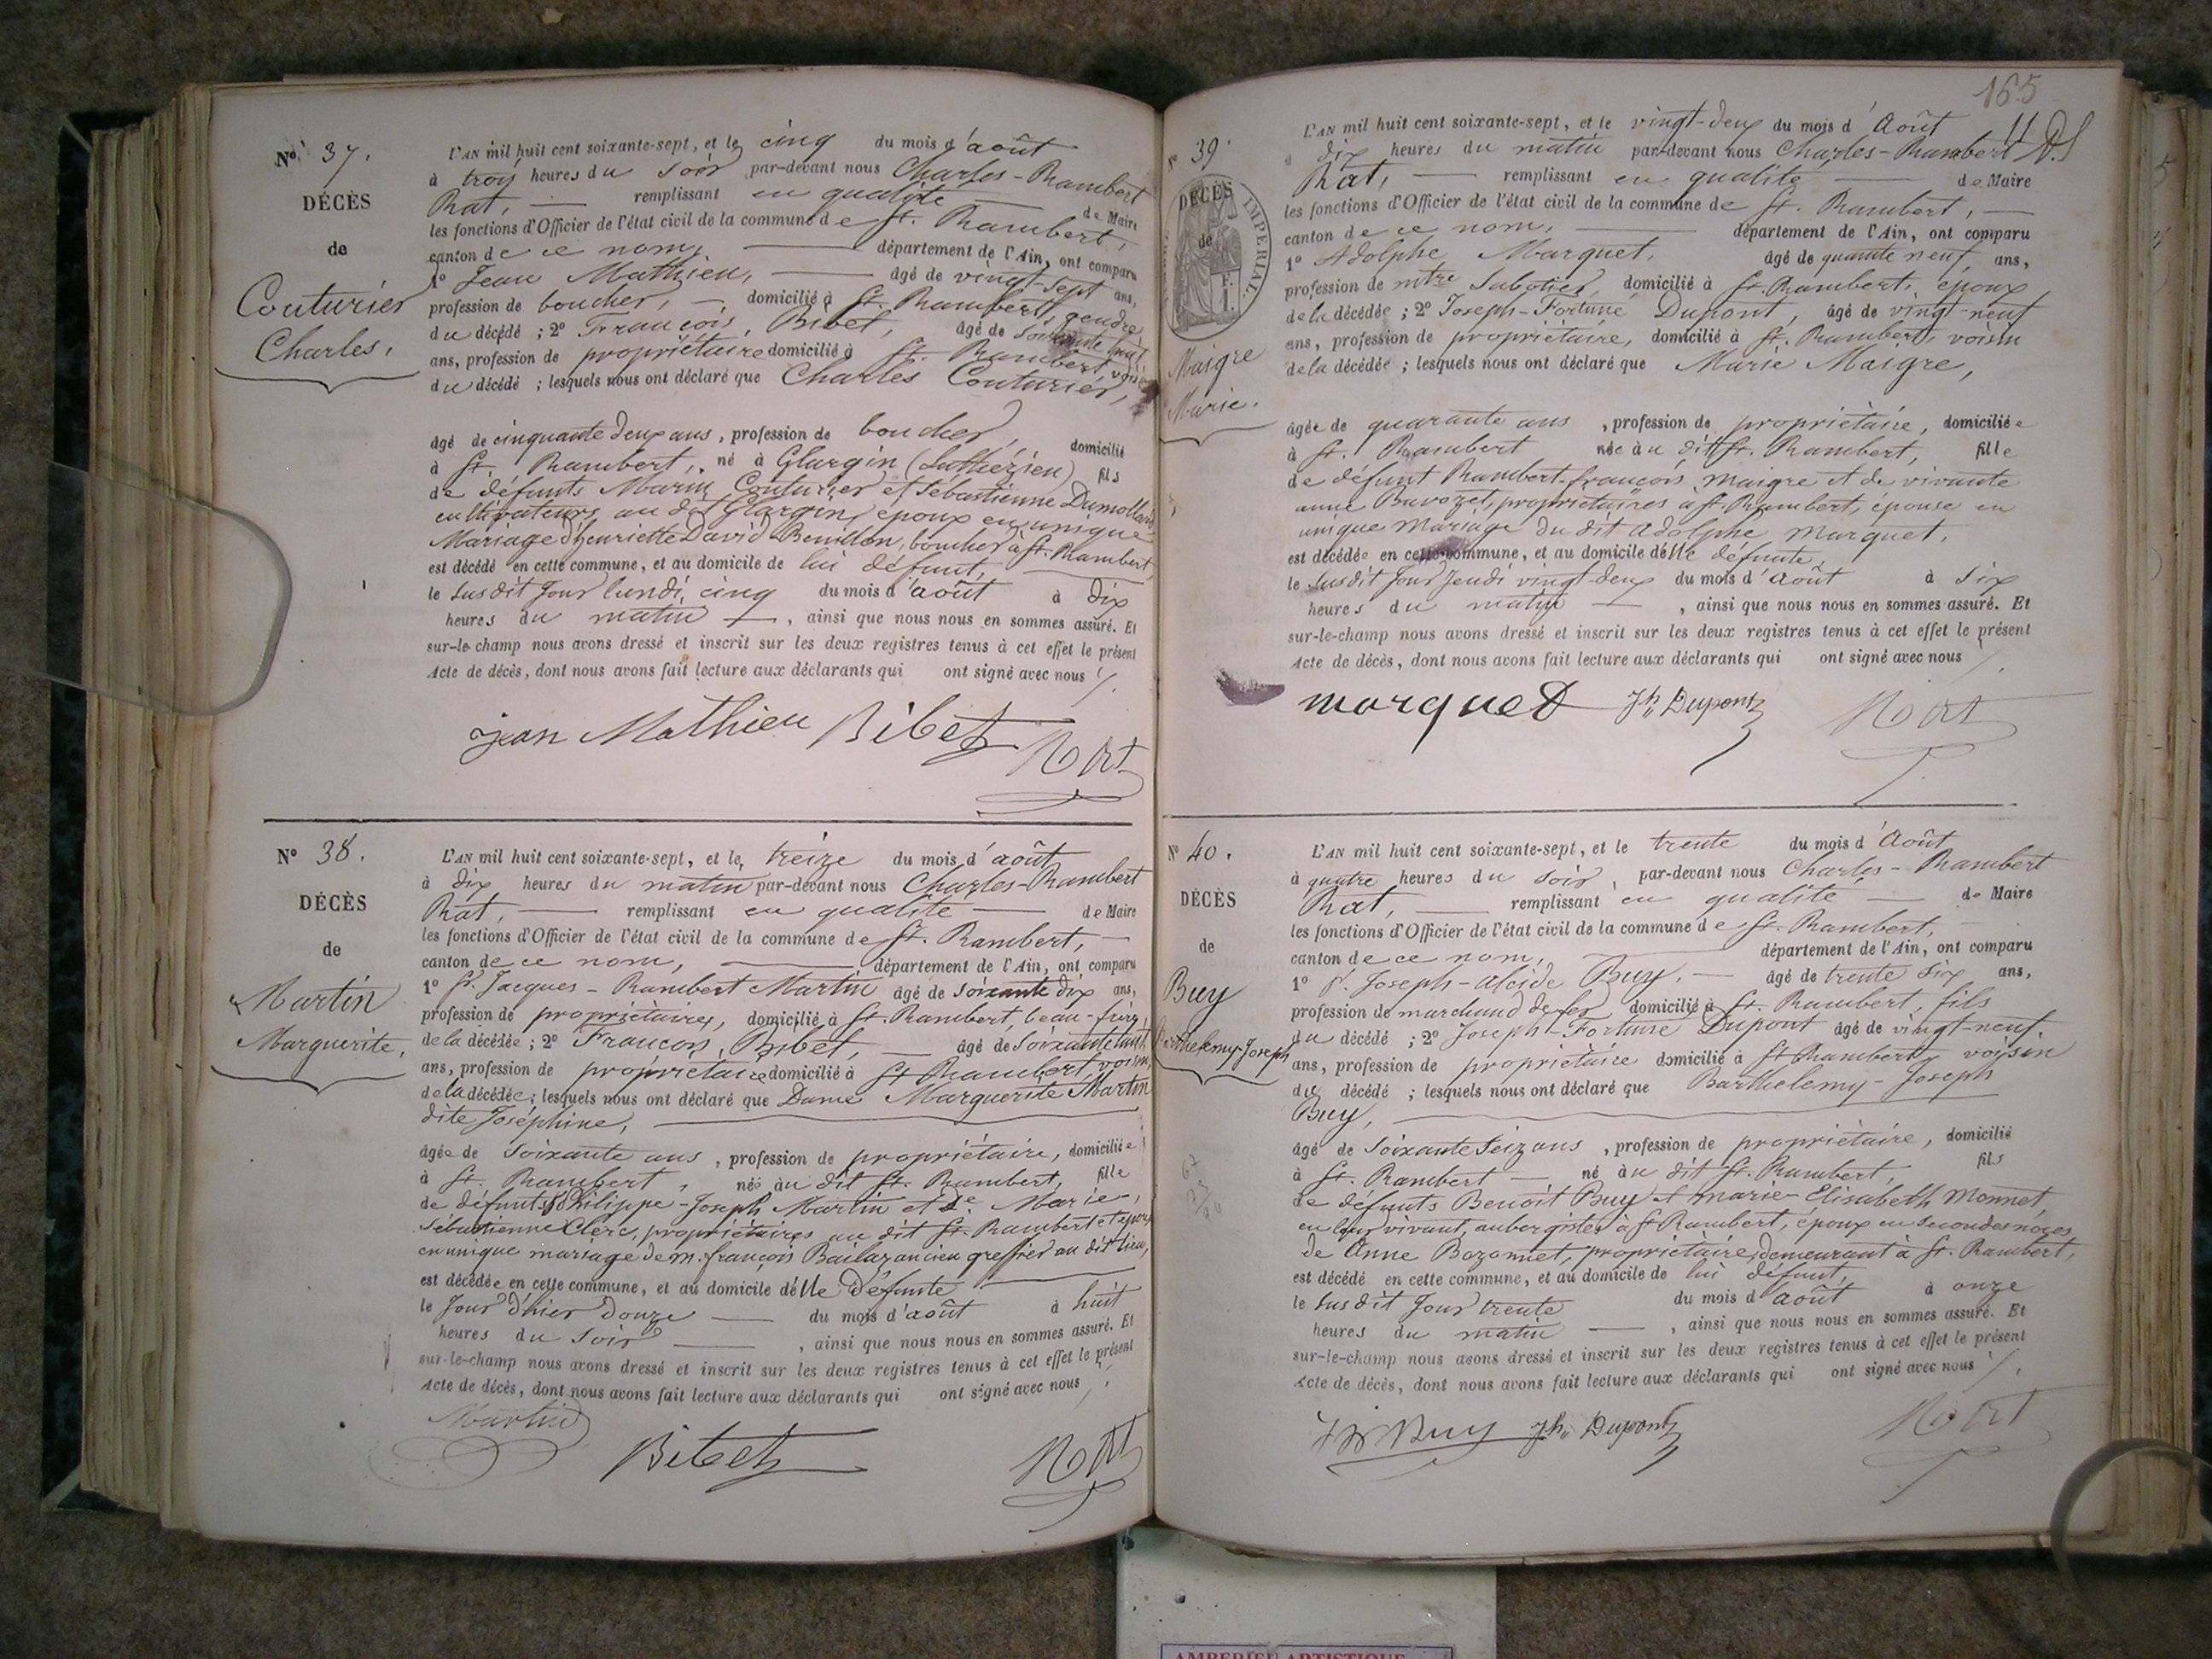 N° 37.
DÉCÈS
de
Couturier
Charles,
L'AN mil huit cent soixante-sept, et le cinq du mois d'août
à trois heures du soir par-devant nous Charles-Rambert
Rat, remplissant en qualité de Maire
les fonctions d'Officier de l'état civil de la commune de St. Rambert,
canton de ce nom, département de l'Ain, ont comparu
1° Jean Mathieu, âgé de vingt-sept ans,
profession de boucher, domicilié à St. Rambert, gendre
du décédé ; 2° François Bibet, âgé de soixante huit
ans, profession de propriétaire domicilié à St. Rambert, voisin
du décédé ; lesquels nous ont déclaré que Charles Couturier,
âgé de cinquante deux ans, profession de boucher, domicilié
à St. Rambert, né à Glargin (Luthézieu) fils
de défunts Marin Couturier et Sébastienne Dumollard
cultivateurs au dit Glargin, époux en unique
Mariage d'henriette David Benidon, boucher à St. Rambert,
est décédé en cette commune, et au domicile de lui défunt,
le susdit jour lundi, cinq du mois d'août à dix
heures du matin, ainsi que nous nous en sommes assuré. Et
sur-le-champ nous avons dressé et inscrit sur les deux registres tenus à cet effet le présent
Acte de décès, dont nous avons fait lecture aux déclarants qui ont signé avec nous
jean Mathieu Bibet Rat
N° 38.
DÉCÈS
de
Martin
Marguerite,
L'AN mil huit cent soixante-sept, et le treize du mois d'août
à dix heures du matin par-devant nous Charles-Rambert
Rat, remplissant en qualité de Maire
les fonctions d'Officier de l'état civil de la commune de St. Rambert,
canton de ce nom, département de l'Ain, ont comparu
1° Sr. Jacques-Rambert Martin âgé de soixante dix ans,
profession de propriétaire, domicilié à St. Rambert, beau-frère
de la décédée ; 2° François Bibet, âgé de soixante huit
ans, profession de propriétaire domicilié à St Rambert, voisin
de la décédée ; lesquels nous ont déclaré que Dame Marguerite Martin
dite Joséphine,
âgée de soixante ans, profession de propriétaire, domiciliée
à St. Rambert, née au dit St. Rambert, fille
de défunts Philippe-Joseph Martin et de Marie-
Sébastienne Clerc, propriétaires au dit St. Rambert et épouse
en unique mariage de m. françois Bailaz ancien greffier au dit lieu,
est décédée en cette commune, et au domicile d'elle défunte
le jour d'hier douze du mois d'août à huit
heures du soir, ainsi que nous nous en sommes assuré. Et
sur-le-champ nous avons dressé et inscrit sur les deux registres tenus à cet effet le présent
Acte de décès, dont nous avons fait lecture aux déclarants qui ont signé avec nous
Martin
Bibet Rat
165
N° 39.
DÉCÈS
de
IMPERIAL.
Maigre
Marie.
L'AN mil huit cent soixante-sept, et le vingt-deux du mois d'Août
à dix heures du matin par-devant nous Charles-Rambert
Rat, remplissant en qualité de Maire
les fonctions d'Officier de l'état civil de la commune de St. Rambert,
canton de ce nom, département de l'Ain, ont comparu
1° Adolphe Marquet, âgé de quarante neuf ans,
profession de mtre Sabotier, domicilié à St. Rambert, époux
de la décédée ; 2° Joseph-Fortuné Dupont, âgé de vingt-neuf
ans, profession de propriétaire, domicilié à St. Rambert, voisin
de la décédée ; lesquels nous ont déclaré que Marie Maigre,
âgée de quarante ans, profession de propriétaire, domiciliée
à St. Rambert née au dit St. Rambert, fille
de défunt Rambert-françois Maigre et de vivante
anne Buvozet, propriétaires à St. Rambert, épouse en
unique Mariage du dit Adolphe Marquet,
est décédée en cette commune, et au domicile d'elle défunte,
le susdit jour Jeudi vingt-deux du mois d'août à six
heures du matin, ainsi que nous nous en sommes assuré. Et
sur-le-champ nous avons dressé et inscrit sur les deux registres tenus à cet effet le présent
Acte de décès, dont nous avons fait lecture aux déclarants qui ont signé avec nous
marquet Jh Dupont Rat
N° 40.
DÉCÈS
de
Buy
Barthelemy-Joseph
L'AN mil huit cent soixante-sept, et le trente du mois d'Août
à quatre heures du soir, par-devant nous Charles-Rambert
Rat, remplissant en qualité de Maire
les fonctions d'Officier de l'état civil de la commune de St. Rambert,
canton de ce nom, département de l'Ain, ont comparu
1° Sr. Joseph-alcide Buy. âgé de trente six ans,
profession de marchand de fer, domicilié à St. Rambert, fils
du décédé ; 2° Joseph-Fortuné Dupont âgé de vingt-neuf.
ans, profession de propriétaire domicilié à St Rambert, voisin
du décédé ; lesquels nous ont déclaré que Barthelemy-Joseph
Buy,
âgé de soixante seize ans, profession de propriétaire, domicilié
à St. Rambert né au dit St. Rambert, fils
de défunts Benoît Buy et marie-Elisabeth Monnet,
en leur vivant, aubergistes à St Rambert, époux en secondes noces
de Anne Bozonnet, propriétaire, demeurant à St. Rambert,
est décédé en cette commune, et au domicile de lui défunt,
le susdit jour trente du mois d'août à onze
heures du matin, ainsi que nous nous en sommes assuré. Et
sur-le-champ nous avons dressé et inscrit sur les deux registres tenus à cet effet le présent
Acte de décès, dont nous avons fait lecture aux déclarants qui ont signé avec nous
Buy Jh Dupont Rat
AMBERIEU ARTISTIQUE